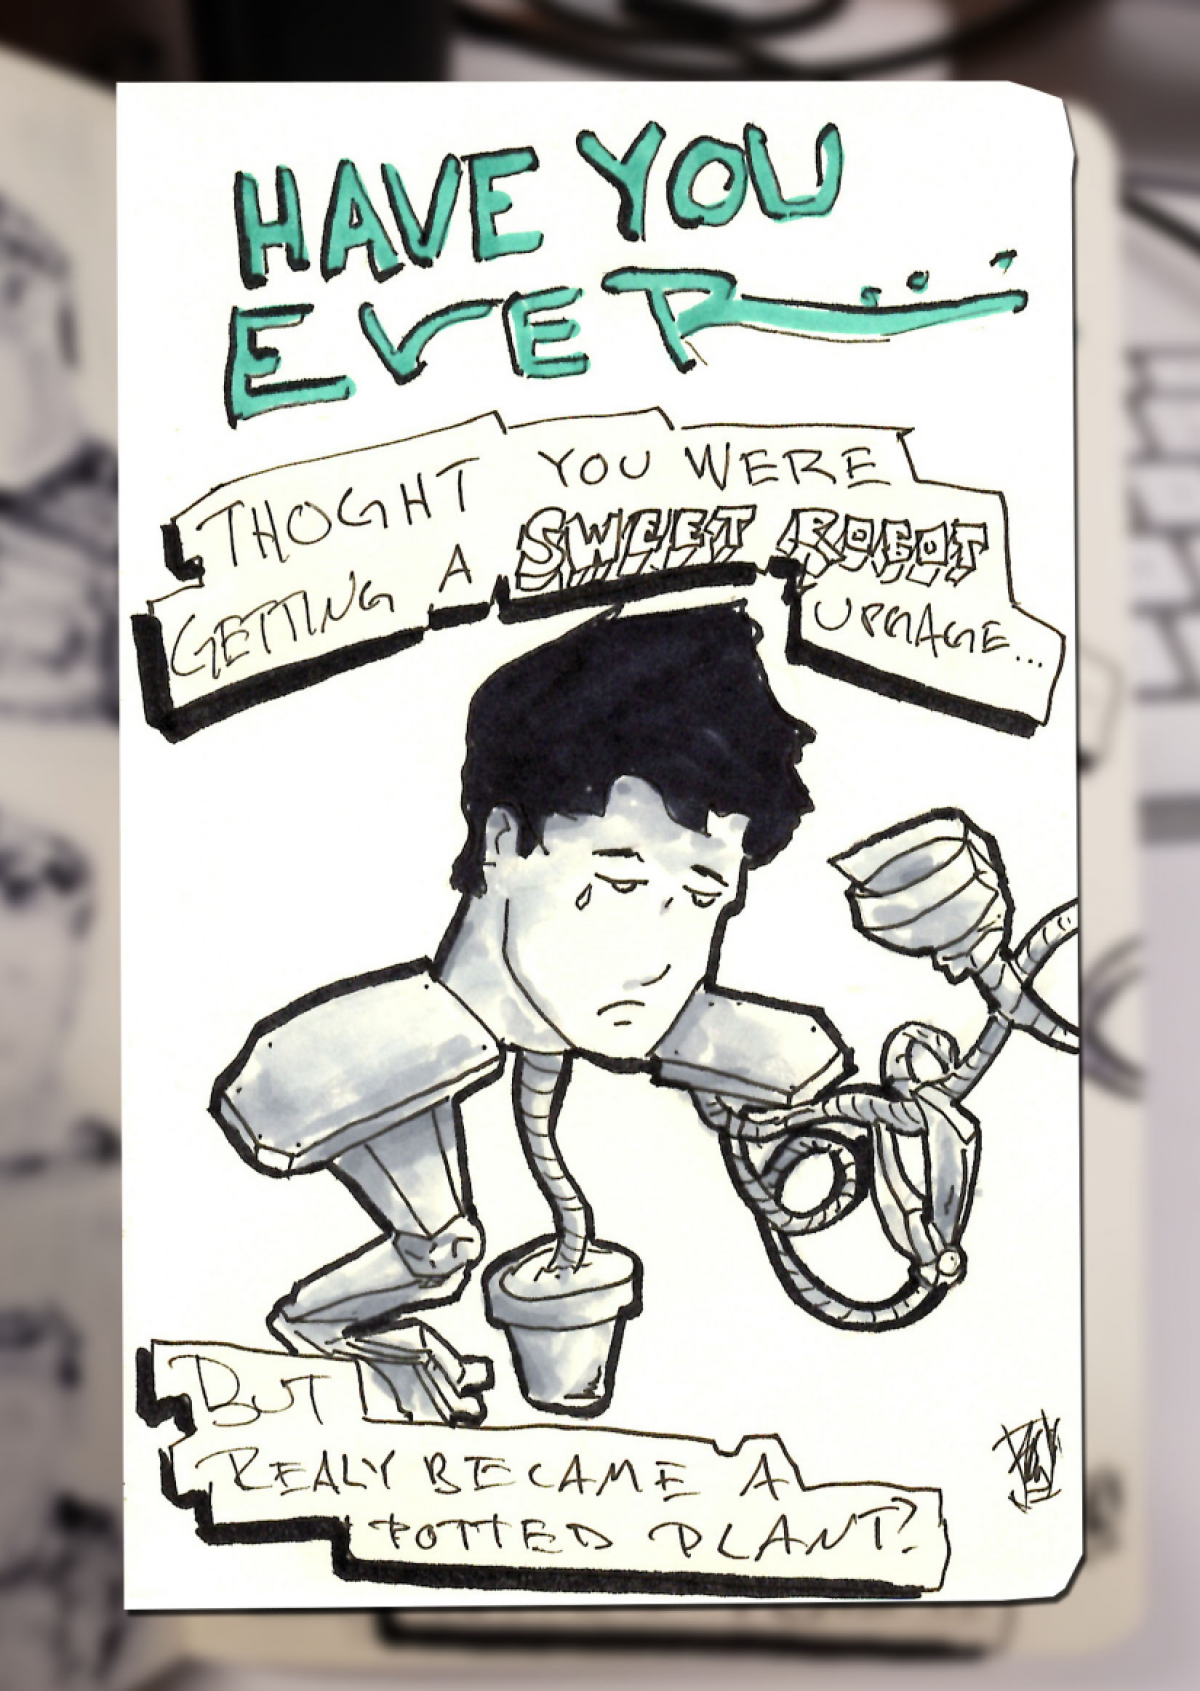 HAVE YOU
EVER...
THOGHT YOU WERE
GETTING A SWEET ROBOT
UPGAGE...
BUT
REALY BECAME A
POTTED PLANT?